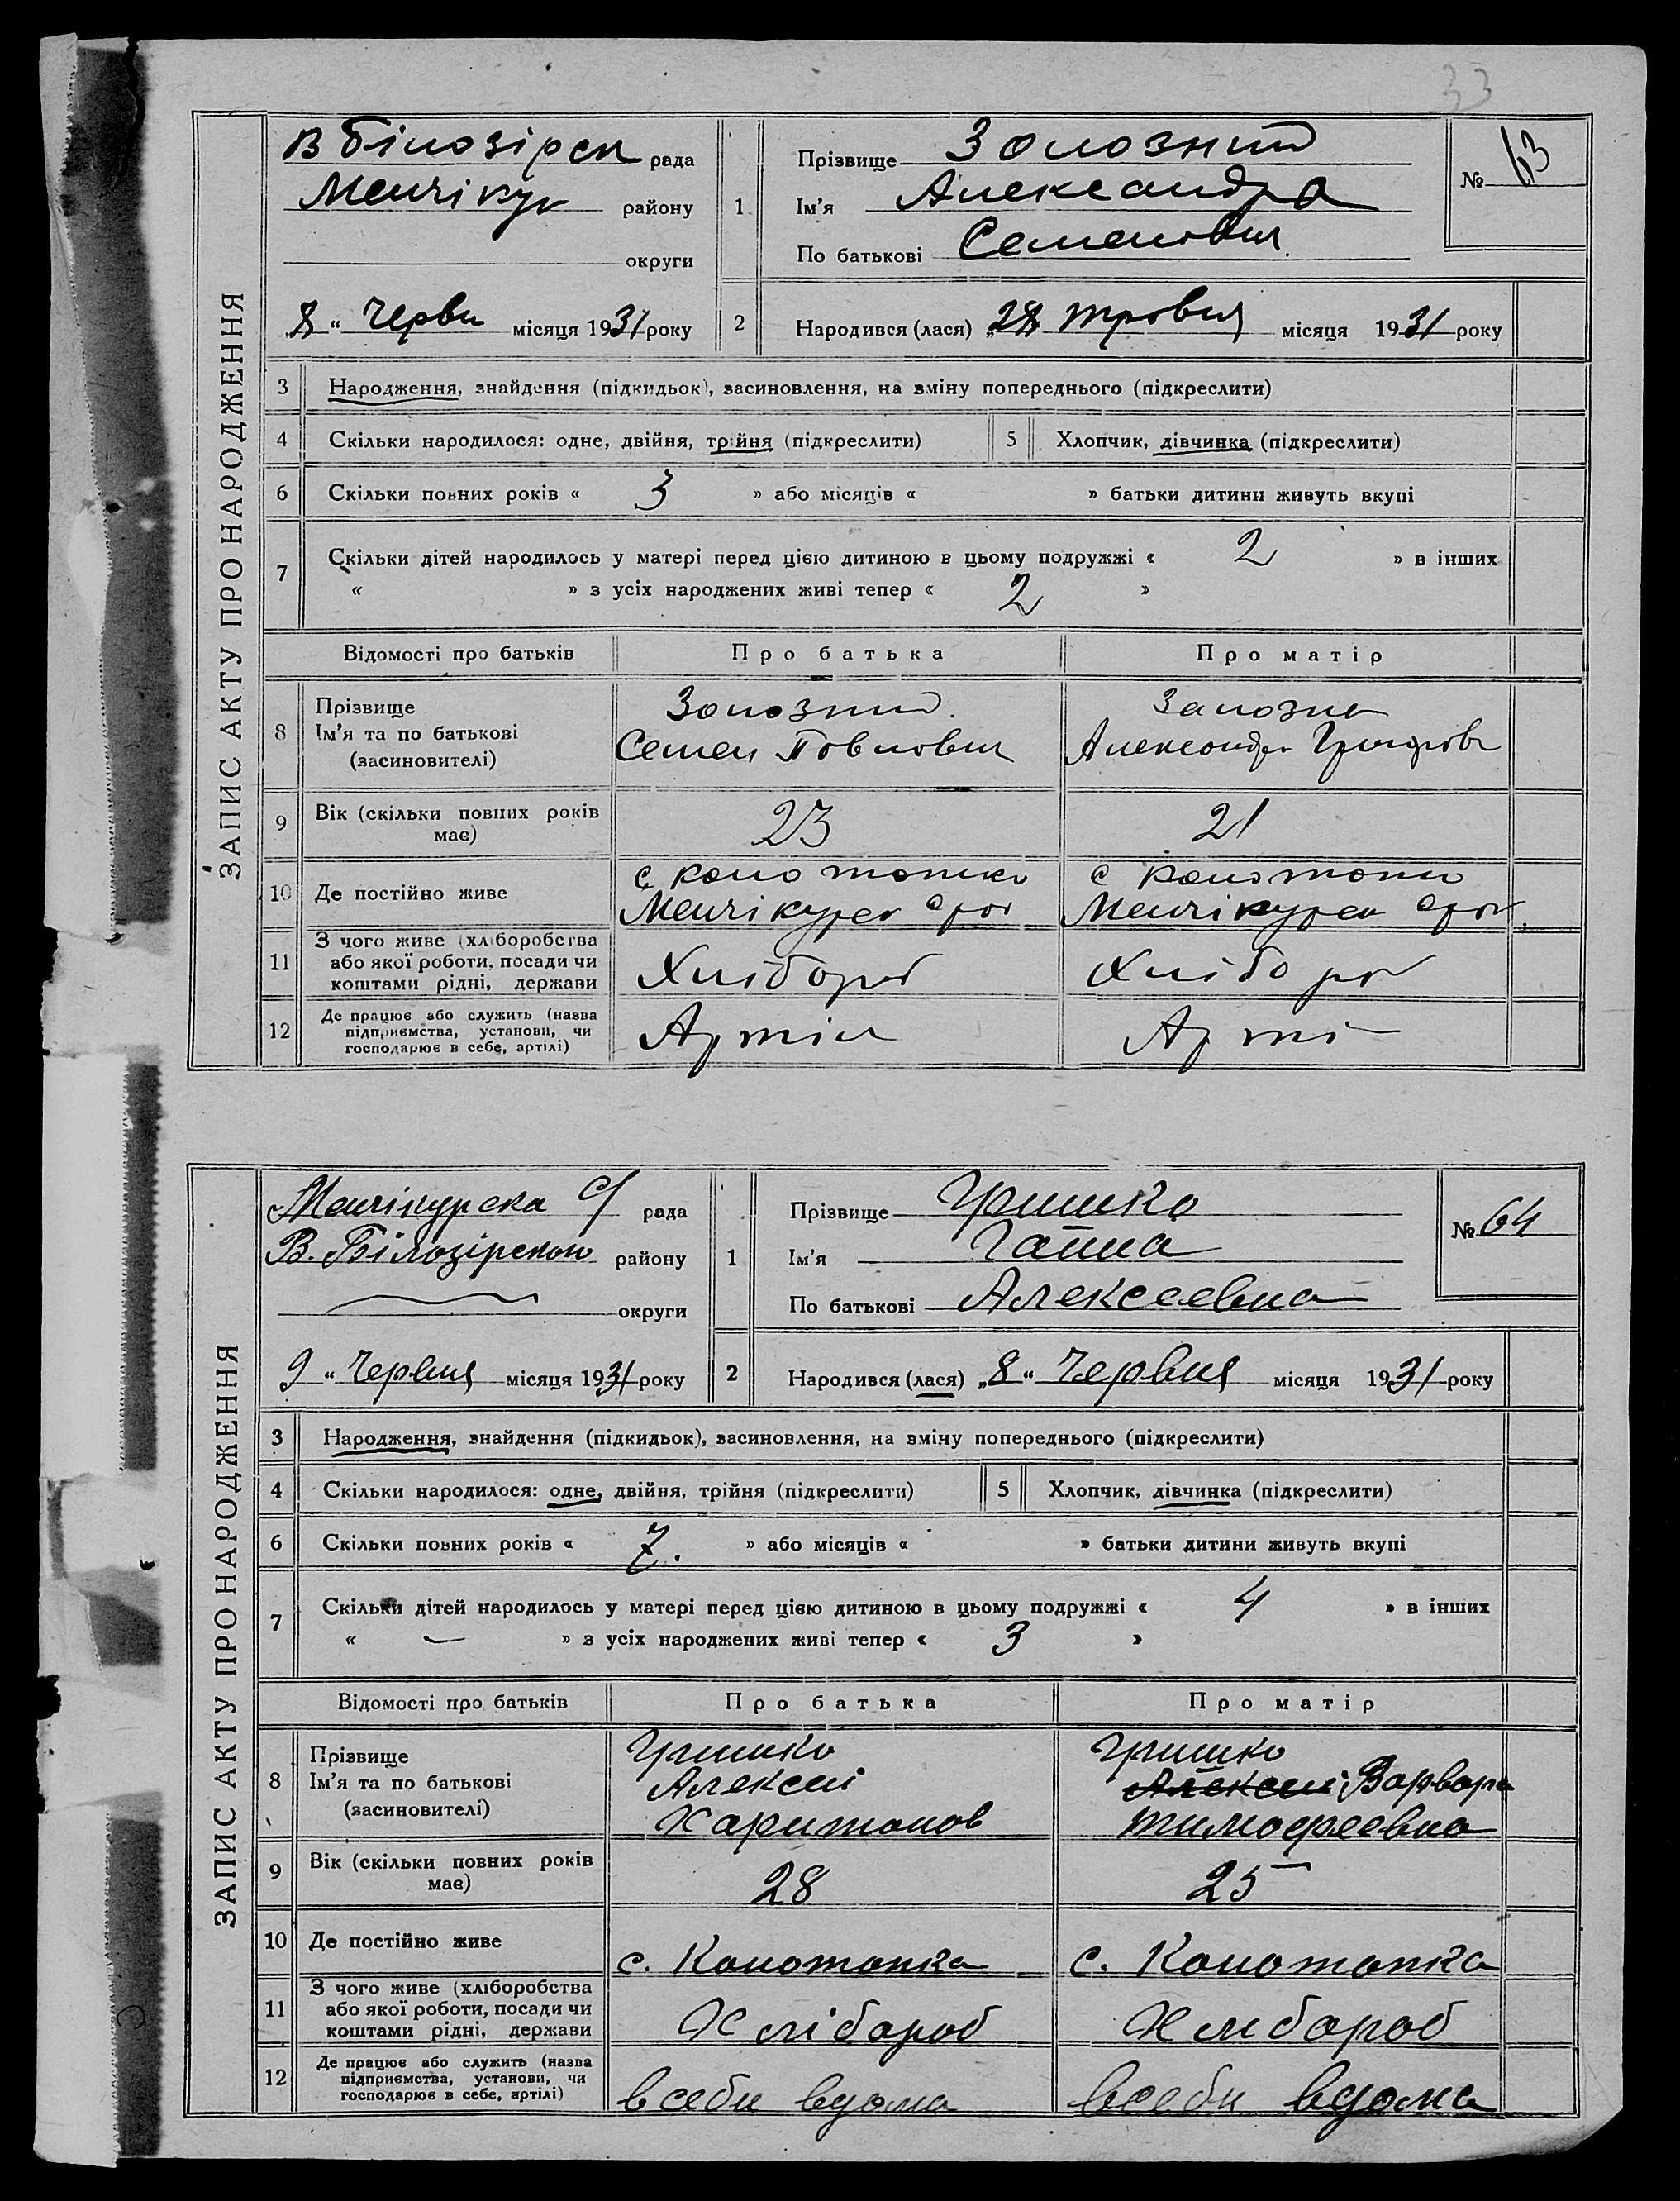 33
ЗАПИС АКТУ ПРО НАРОДЖЕННЯ
В Білозірск рада
Менчікур району
округи
8 " Черви місяця 1931 року
1
Прізвище Золозний
Ім'я Александра
По батькові Семенович
№ 63
2
Народився (лася) „28 травня місяця 1931 року
3 Народження, знайдення (підкидьок), засиновлення, на зміну попереднього (підкреслити)
4 Скільки народилося: одне, двійня, трійня (підкреслити) 5 Хлопчик, дівчинка (підкреслити)
6 Скільки повних років « 3 » або місяців « » батьки дитини живуть вкупі
7 Скільки дітей народилось у матері перед цією дитиною в цьому подружжі « 2 » в інших
« » з усіх народжених живі тепер « 2 »
Відомості про батьків Про батька Про матір
8 Прізвище Ім'я та по батькові (засиновителі)
Золозний Семен Павлович
Залозна Александра
9 Вік (скільки повних років має) 23 21
10 Де постійно живе
с Конотопка Менчікурск
с Конотопка Менчікурск
11 З чого живе (хліборобства або якої роботи, посади чи коштами рідні, держави
Хлібороб Хлібороб
12 Де працює або служить (назва підприємства, установи, чи господарює в себе, артілі)
Артіл Арті
ЗАПИС АКТУ ПРО НАРОДЖЕННЯ
Менчікурска с/ рада
В. Білозірского району
округи
9 " Червня місяця 1931 року
1
Прізвище Гришко
Ім'я Ганна
По батькові Алексеевна
№ 64
2
Народився (лася) „8" Червня місяця 1931 року
3 Народження, знайдення (підкидьок), засиновлення, на зміну попереднього (підкреслити)
4 Скільки народилося: одне, двійня, трійня (підкреслити) 5 Хлопчик, дівчинка (підкреслити)
6 Скільки повних років « 7. » або місяців « » батьки дитини живуть вкупі
7 Скільки дітей народилось у матері перед цією дитиною в цьому подружжі « 4 » в інших
« — » з усіх народжених живі тепер « 3 »
Відомості про батьків Про батька Про матір
8 Прізвище Ім'я та по батькові (засиновителі)
Гришко Алексеі Харитонов
Гришко Алексеі Варвара Тимофеевна
9 Вік (скільки повних років має) 28 25
10 Де постійно живе с. Конотопка с. Конотопка
11 З чого живе (хліборобства або якої роботи, посади чи коштами рідні, держави
Хлібороб Хлібороб
12 Де працює або служить (назва підприємства, установи, чи господарює в себе, артілі)
в себи вдома в себи вдома